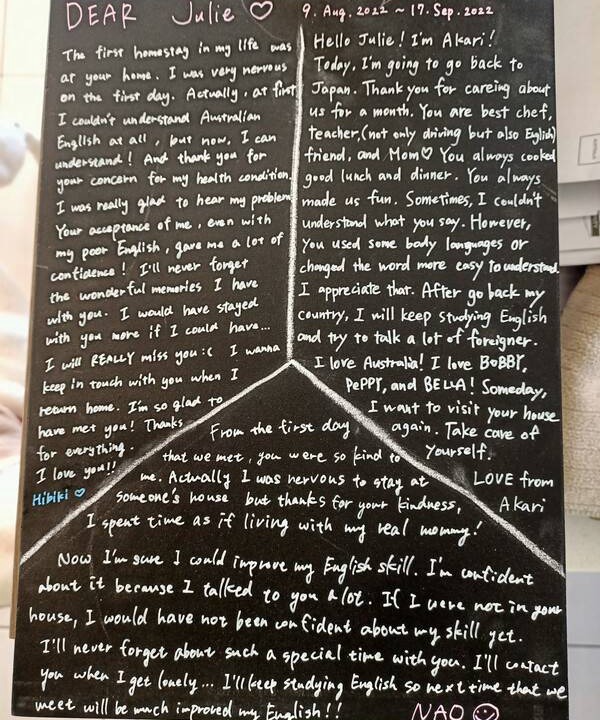 DEAR Julie ♡
9. Aug. 2022 ~ 17. Sep. 2022
The first homestay in my life was
at your home. I was very nervous
on the first day. Actually, at first
I couldn't understand Australian
English at all, but now, I can
understand! And thank you for
your concern for my health condition.
I was really glad to hear my problem
Your acceptance of me, even with
my poor English, gave me a lot of
confidence! I'll never forget
the wonderful memories I have
with you. I would have stayed
with you more if I could have...
I will REALLY miss you :( I wanna
keep in touch with you when I
return home. I'm so glad to
have met you! Thanks
for everything.
I love you!!
Hibiki ♡
Hello Julie! I'm Akari!
Today, I'm going to go back to
Japan. Thank you for careing about
us for a month. You are best chef,
teacher, (not only driving but also English)
friend, and Mom♡ You always cooked
good lunch and dinner. You always
made us fun. Sometimes, I couldn't
understand what you say. However,
You used some body languages or
changed the word more easy to understand.
I appreciate that. After go back my
country, I will keep studying English
and try to talk a lot of foreigner.
I love Australia! I love BOBBY,
PePPY, and BELLA! Someday,
I want to visit your house
again. Take care of
Yourself.
LOVE from
Akari
From the first day
that we met, you were so kind to
me. Actually I was nervous to stay at
someone's house but thanks for your kindness,
I spent time as if living with my real mommy!
Now I'm sure I could improve my English skill. I'm confident
about it because I talked to you a lot. If I were not in your
house, I would have not been confident about my skill yet.
I'll never forget about such a special time with you. I'll contact
you when I get lonely... I'll keep studying English so next time that we
meet will be much improved my English!! NAO ☺